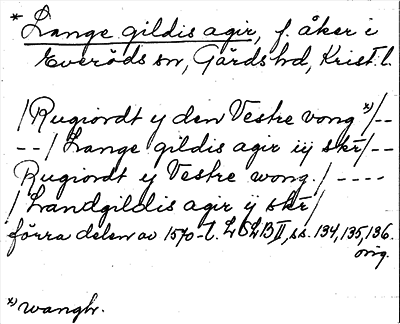 * Lange gildis agir, f. åker i
Everöds sn, Gärds hd, Krist. l.
/Rugiordt y den Vestre vong *)/--
--/ Lange gildis agir iij skr/--
Rugiordt ij Vestre wong. / ----
/ Landgildis agir ij skr/
förra delen av 1570-t. LSLB II, ss. 134, 135, 136.
orig.
*) wanghr.